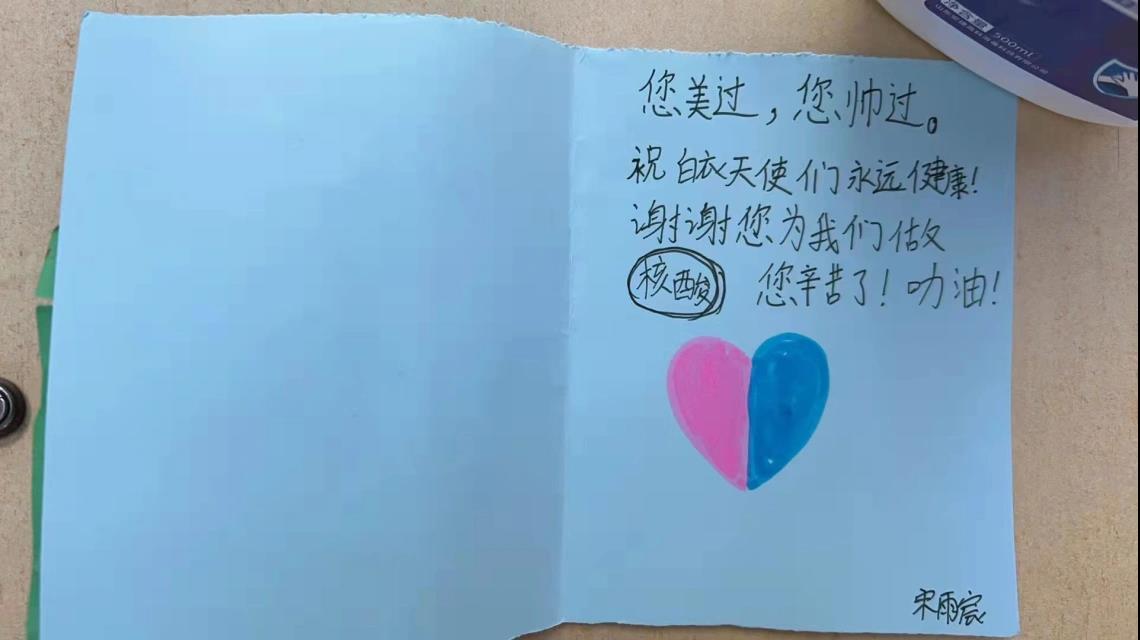 您美过，您帅过。
祝白衣天使们永远健康！
谢谢您为我们做
核酸 您辛苦了！加油！
宋雨宸
净含量 500ml